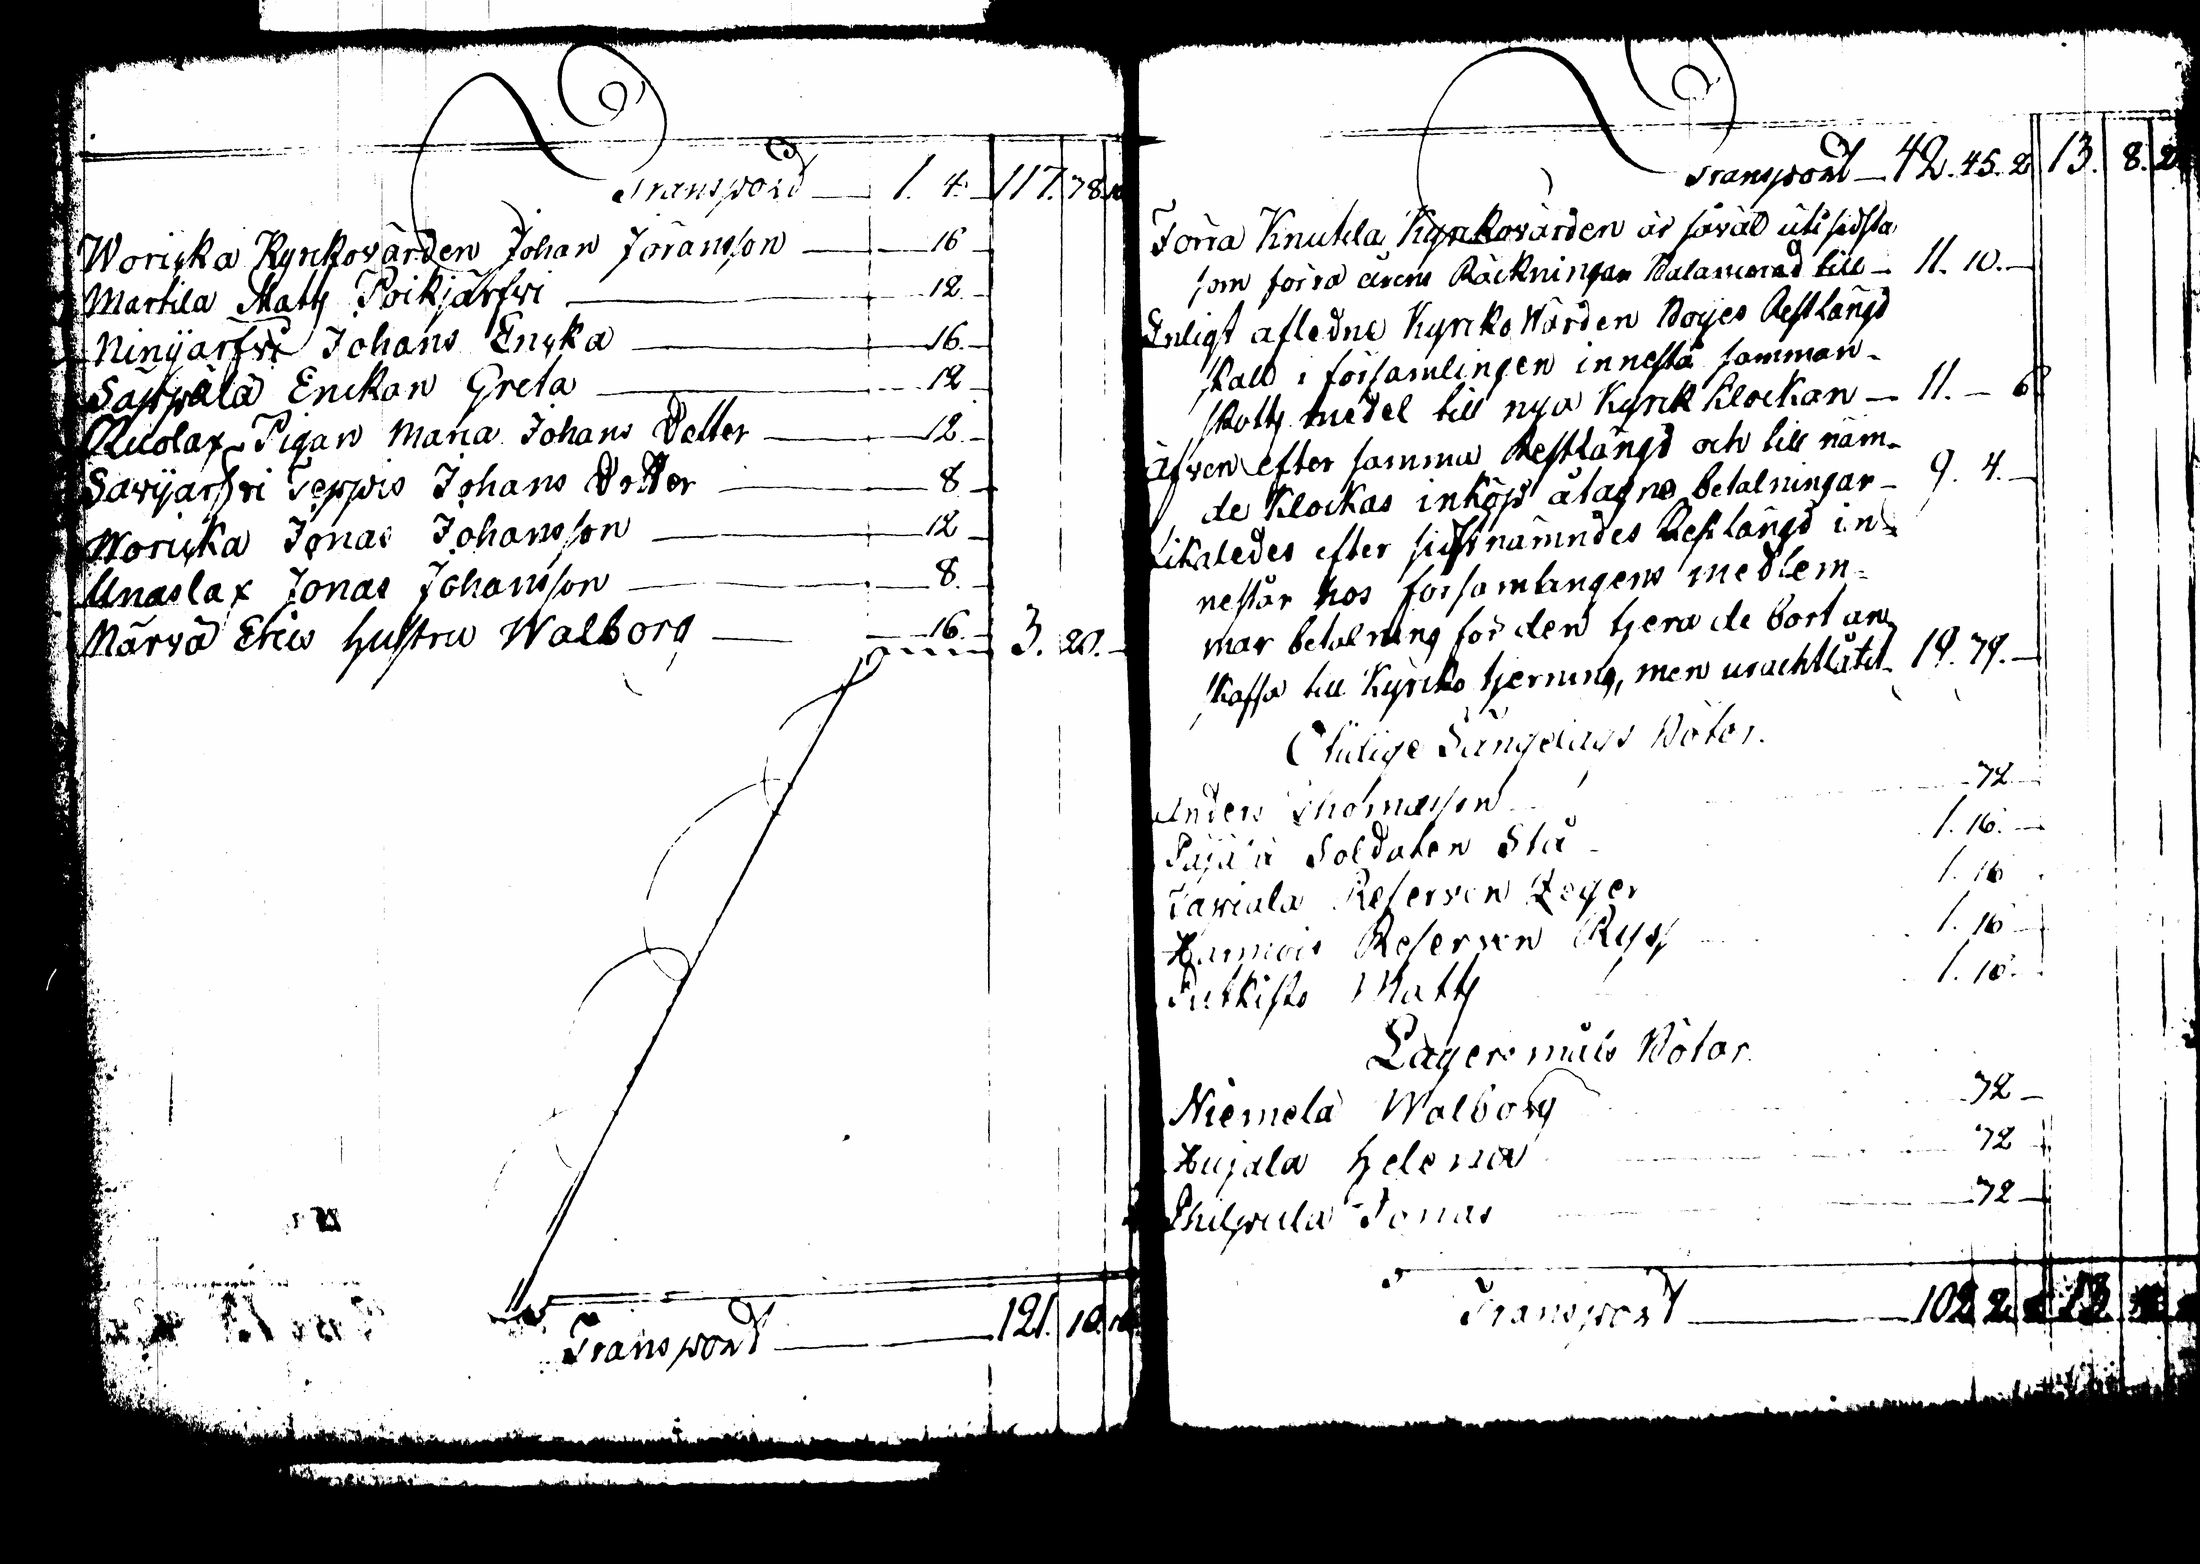 Transpord — 1. 4. 117. 78.
Woriska Kyrkovärden Johan Jöransson — 16
Martila Matts Poikjärfwi — 12
Ninijärfwi Johans Encka — 16.
Enckan Greta — 12
Ruolax Pigan Maria Johans Dotter — 12
Sawijärfwi Seppis Johans Dotter — 8
Woriska Jonas Johansson — 12
Unaslax Jonas Johansson — 8.
Märvä Erics Hustru Walborg — 16. 3. 20. —
Transpord — 121. 10.
Transpord — 42. 45. 2 13. 8. 2
Förra Knutila Kyrkovärden är såväl uti sidsta
som förra årens Räckningar Balancerad till — 11. 10. —
Enligt afledne Kyrko Wärden Boijes Restlängd
skall i församlingen innestå samman-
skotts medel till nya Kyrck Klockan — 11. — 6
Äfven efter samma Restlängd och till näm-
de Klockas inköp åtagne betalningar — 9. 4. —
Likaledes efter sistnämndes Restlängd in-
nestår hos församlingens medlem-
mar betalning för den tjera de bort an-
skaffa till Kyrko tjerning, men urachtlåtit — 19. 79. —
Otidige Sängelags Böter.
Anders Thomasson — 72
Soldaten Stå — 1. 16. —
Reserven — 1. 16
Reserven Ryss — 1. 16 —
Putkisto Matts 1. 16.
Lägersmåls Böter.
Niemelä Walborg 72 —
Hujala Helena 72
Philpula Jonas 72 —
Transpord — 102 2